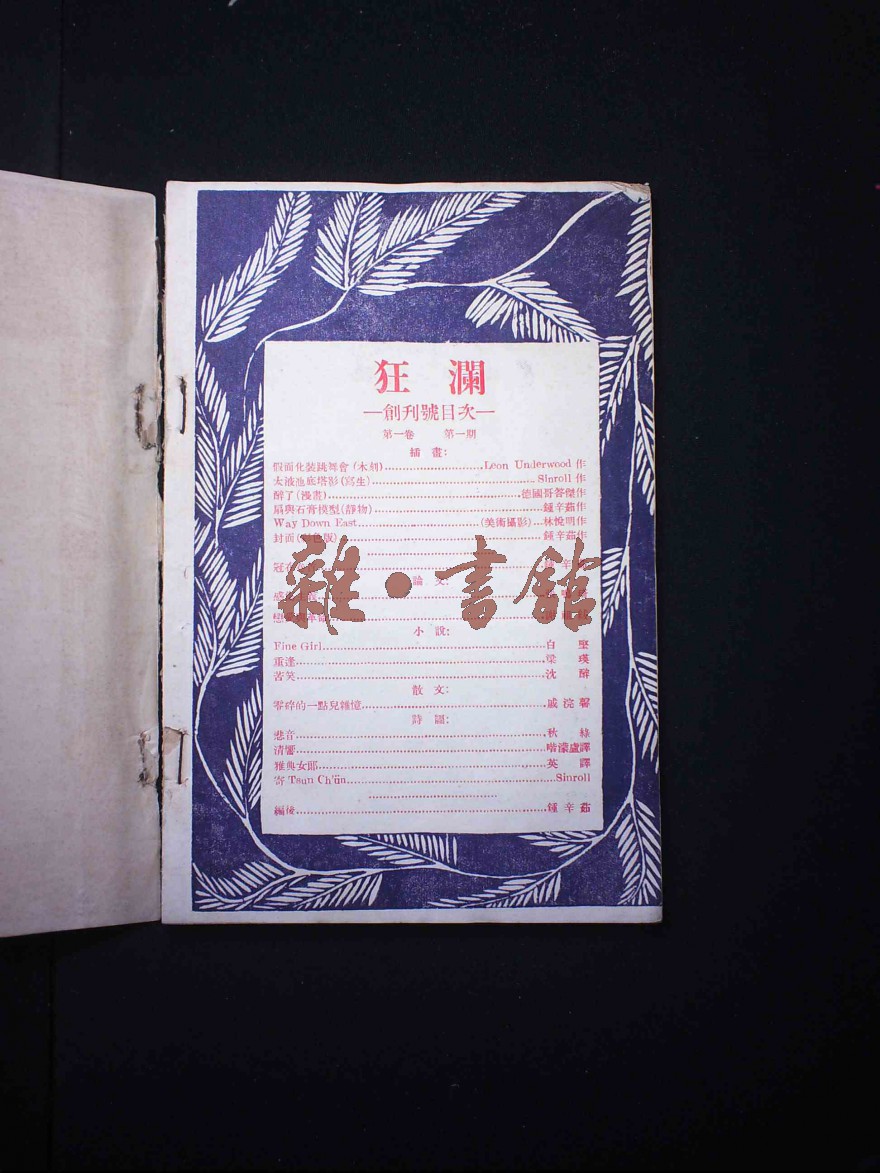 狂瀾
—創刊號目次—
第一卷 第一期
插畫:
假面化裝跳舞會(木刻)……Leon Underwood 作
太液池底塔影(寫生)……Sinroll 作
醉了(漫畫)……德國哥答傑作
扇與石膏模型(靜物)……鍾辛茹作
Way Down East……(美術攝影)…林悅明作
封面(色版)……鍾辛茹作
雜·書館
論文
小說:
Fine Girl……白堅
重逢……梁瑛
苦笑……沈醉
散文:
零碎的一點兒雜憶……戚浣馨
詩園:
悲音……秋綠
清響……盧譯
雅典女郎……英譯
寄 Tsun Ch'ün……Sinroll
編後……鍾辛茹